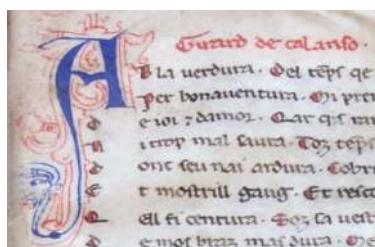 Guiraud de calanso.
A
B la uerdura. Del tēps qe
Per bonauentura. Mi pren
e ioi z damor. Car
trop mal saura. Toz tēps
ont seu nai ardura. Cobri
t mostrill gaug. Et resco
Ell fi centura. Soz la uest
e mos braz mas dura.